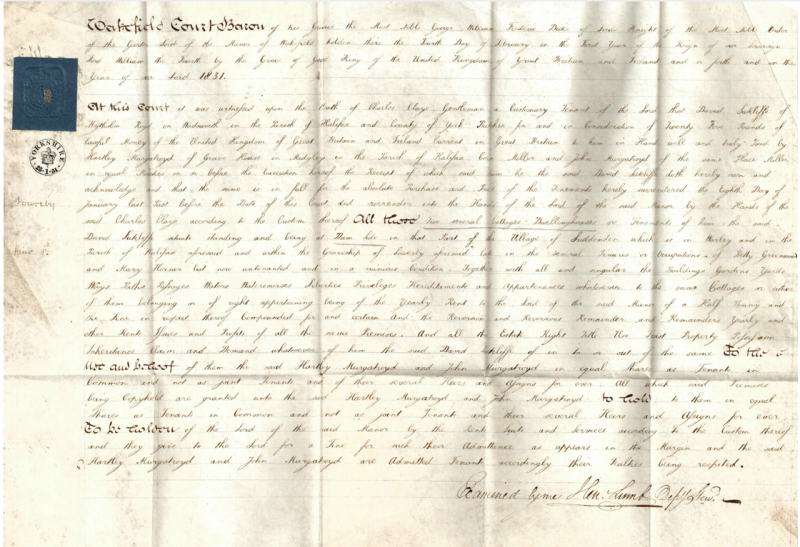 Wakefield Court Baron of His Grace the Most Noble George William Frederic Duke of Leeds Knight of the Most Noble Order
of the Garter Lord of the Manor of Wakefield holden there the Fourth Day of February in the First Year of the Reign of our Sovereign
Lord William the Fourth by the Grace of God King of the United Kingdom of Great Britain and Ireland and so forth and in the
Year of our Lord 1831.
At this Court it was witnessed upon the Oath of Charles Clay Gentleman a Customary Tenant of the Lord that David Sutcliffe of
in Wadsworth in the Parish of Halifax and County of York for and in Consideration of Twenty Five Pounds of
Lawful Money of the United Kingdom of Great Britain and Ireland Current in Great Britain to him in Hand well and truly Paid by
Hartley Murgatroyd of House in Midgley in the Parish of Halifax Corn Miller and John Murgatroyd of the same Place Miller
in equal Shares on or before the Execution hereof the Receipt of which said Sum he the said David Sutcliffe doth hereby own and
acknowledge and that the same is in full for the absolute Purchase and Fee of the Tenements hereby surrendered the Eighth Day of
January last Past before the Date of this Court did surrender into the Hands of the Lord of the said Manor by the Hands of the
said Charles Clay according to the Custom thereof All those two several Cottages Dwellinghouses or Tenements of him the said
David Sutcliffe situate standing and being at in that Part of the Village of Luddenden which is in Warley and in the
Parish of Halifax aforesaid and within the Graveship of Sowerby aforesaid late in the several Tenures or Occupations of Betty Greenwood
and Mary Horner but now untenanted and in a ruinous Condition Together with all and singular the Buildings Gardens Yards
Ways Paths Passages Waters Watercourses Liberties Privileges Hereditaments and Appurtenances whatsoever to the same Cottages or either
of them belonging or of right appertaining being of the Yearly Rent to the Lord of the said Manor of a Half Penny and
the Fine in respect thereof Compounded for and certain And the Reversion and Reversions Remainder and Remainders Yearly and
other Rents Issues and Profits of all the same Premises And all the Estate Right Title Use Trust Property
Inheritance Claim and Demand whatsoever of him the said David Sutcliffe of in to or out of the same To the
Use and behoof of them the said Hartley Murgatroyd and John Murgatroyd in equal Shares as Tenants in
Common and not as joint Tenants and of their several Heirs and Assigns for ever All which said Premises
being Copyhold are granted unto the said Hartley Murgatroyd and John Murgatroyd to hold to them in equal
Shares as Tenants in Common and not as joint Tenants and their several Heirs and Assigns for ever
To be holden of the Lord of the said Manor by the Rents Suits and Services according to the Custom thereof
and they give to the Lord for a Fine for such their Admittance as appears in the Margin and the said
Hartley Murgatroyd and John Murgatroyd are Admitted Tenants accordingly their Fealties being respited.
Examined by me Hen: Lumb Depy Stewd.
YORKSHIRE
Sowerby